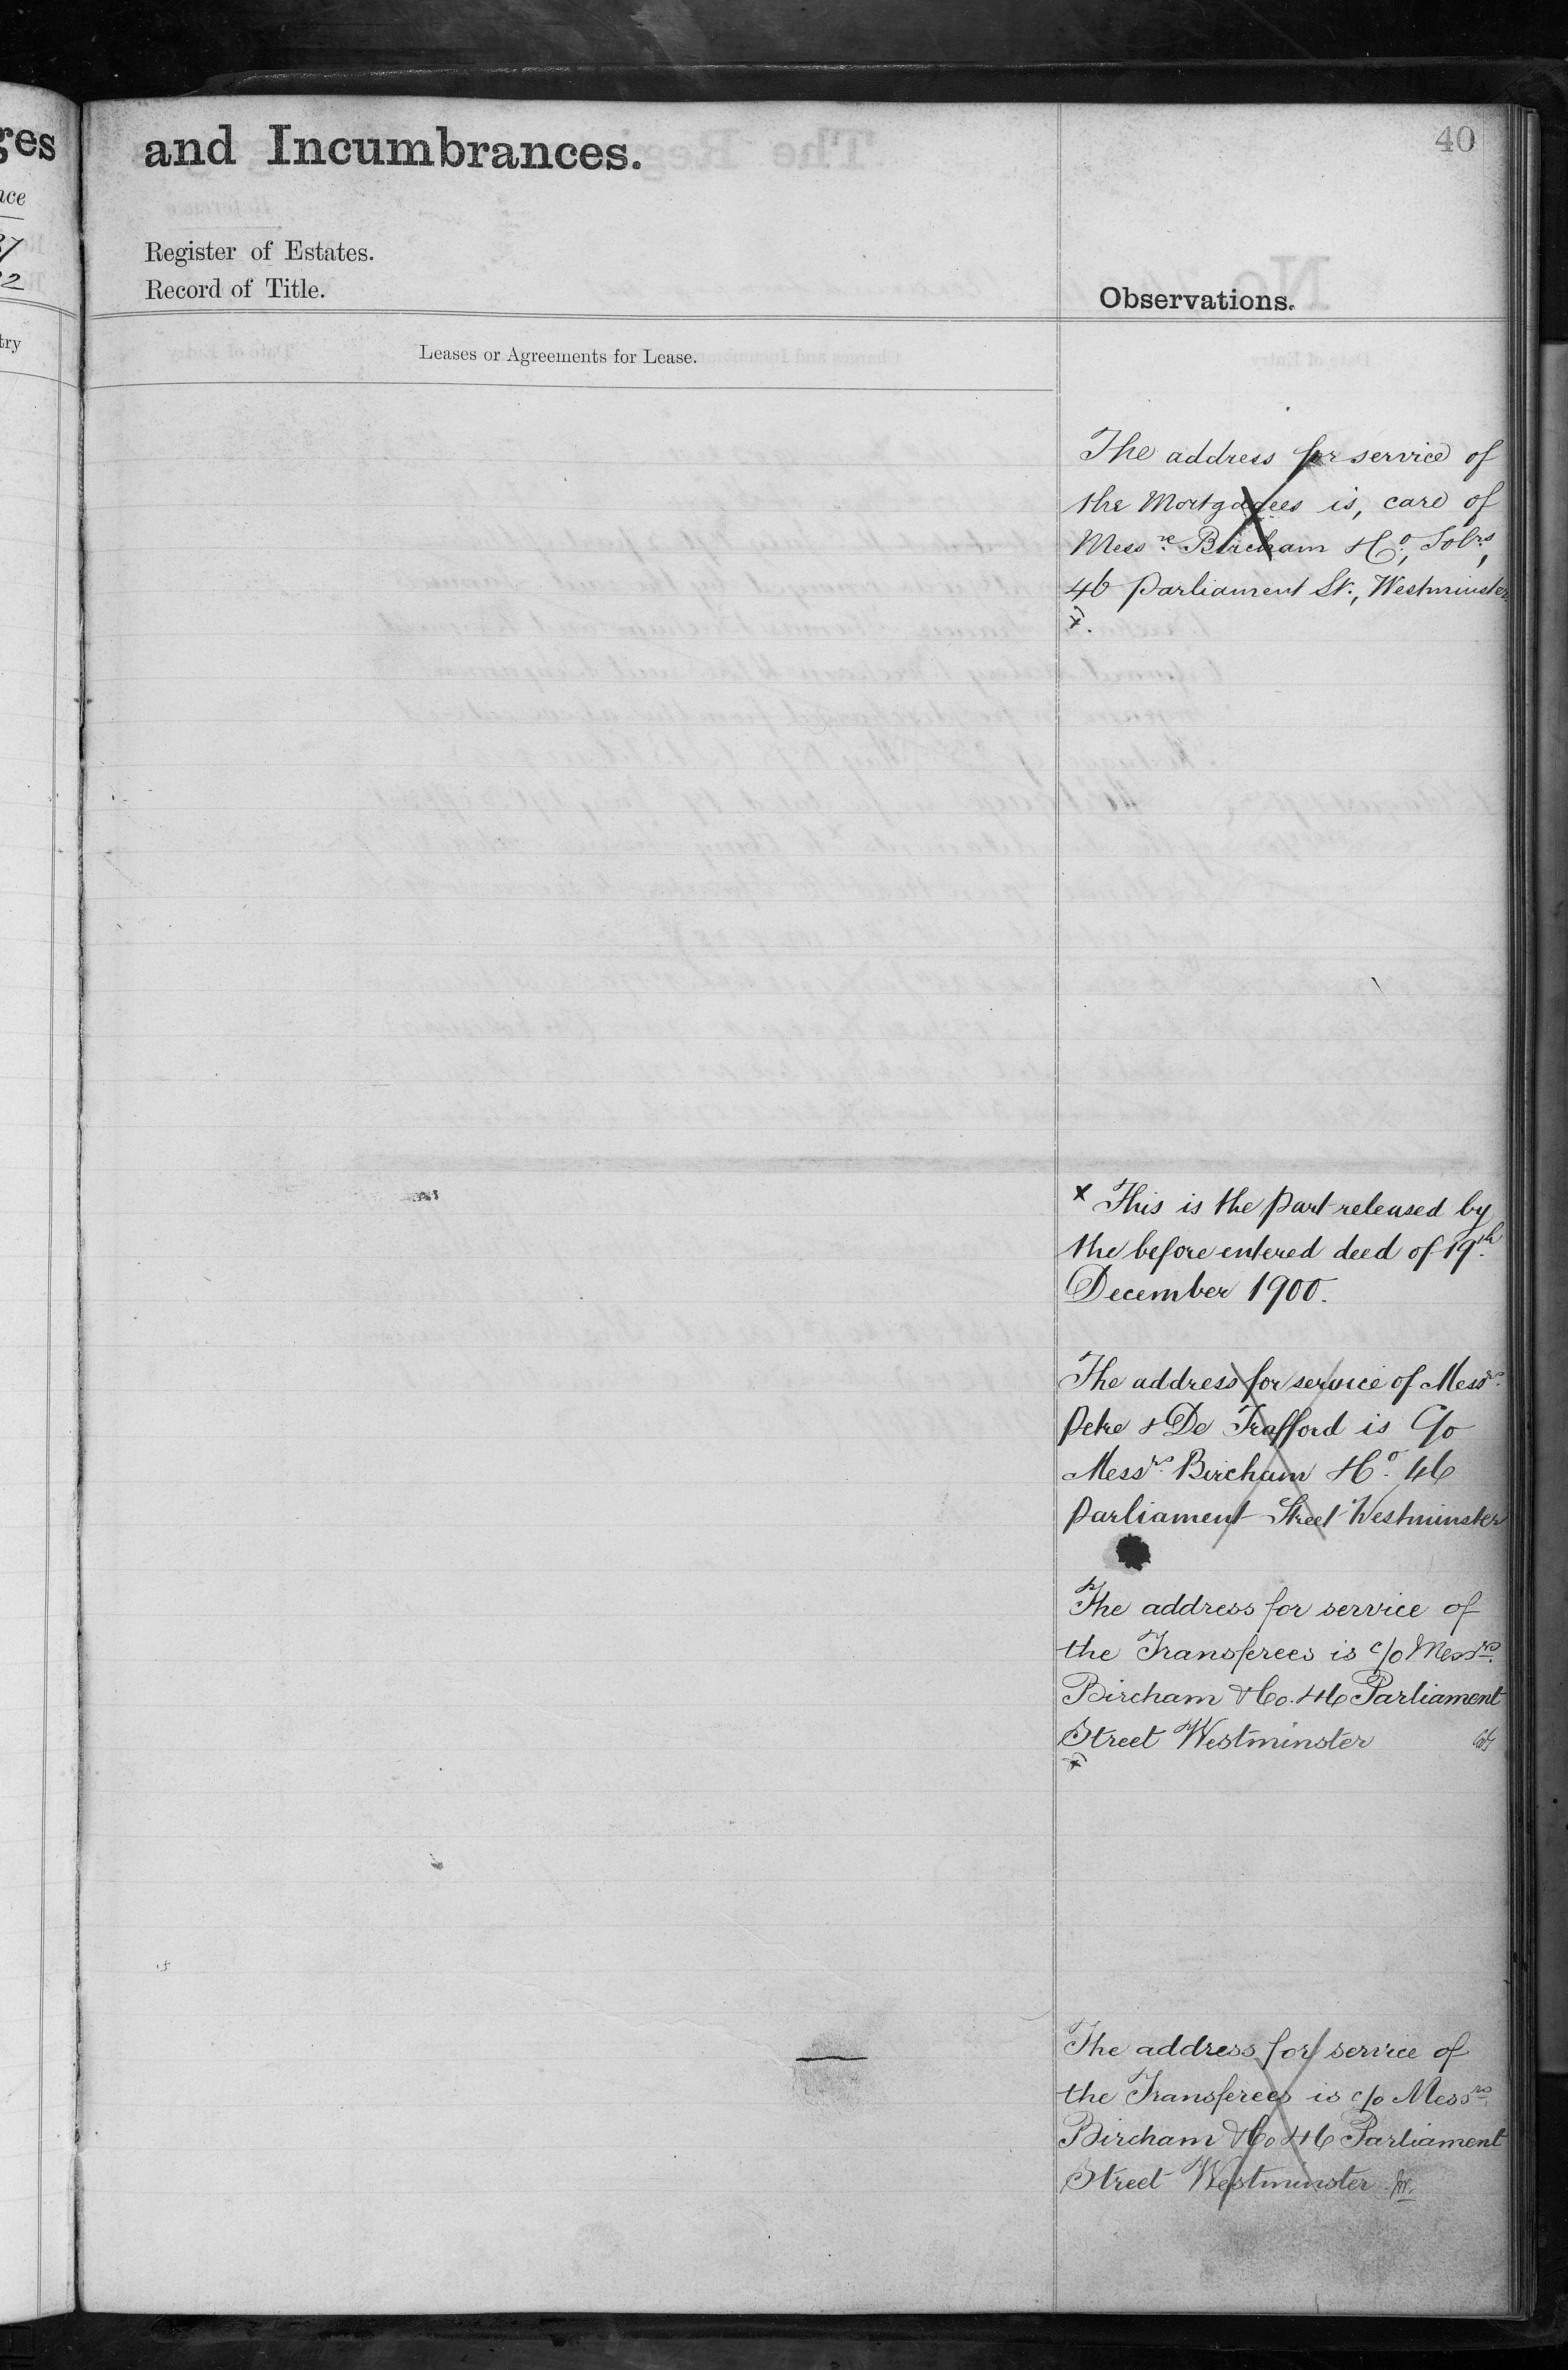 ges
and Incumbrances.
40
nce
37
2
Register of Estates.
Record of Title.
Observations.
try
Leases or Agreements for Lease.
The address for service of
the Mortgagees is, care of
Messrs. Bircham & Co., Solrs,
46 Parliament St., Westminster
x.
x This is the part released by
the before entered deed of 19th.
December 1900.
The address for service of Messrs.
Petre & De Trafford is C/o
Messrs. Bircham & Co. 46
Parliament Street Westminster
The address for service of
the Transferees is c/o Messrs.
Bircham & Co. 46 Parliament
Street Westminster
x
The address for service of
the Transferees is c/o Messrs.
Bircham & Co 46 Parliament
Street Westminster